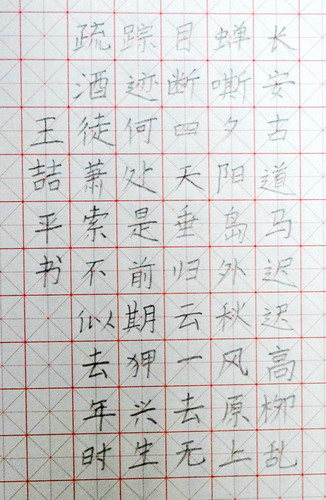 长安古道马迟迟高柳乱
蝉嘶夕阳岛外秋风原上
目断四天垂归云一去无
踪迹何处是前期狎兴生
疏酒徒萧索不似去年时
王喆平书